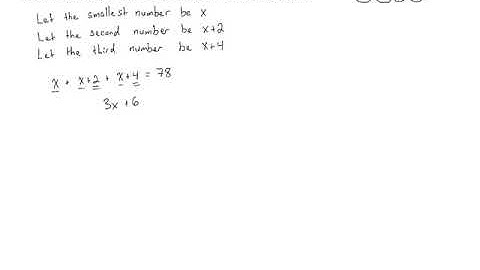 Let the smallest number be x
Let the second number be x+2
Let the third number be x+4
x + x+2 + x+4 = 78
3x + 6